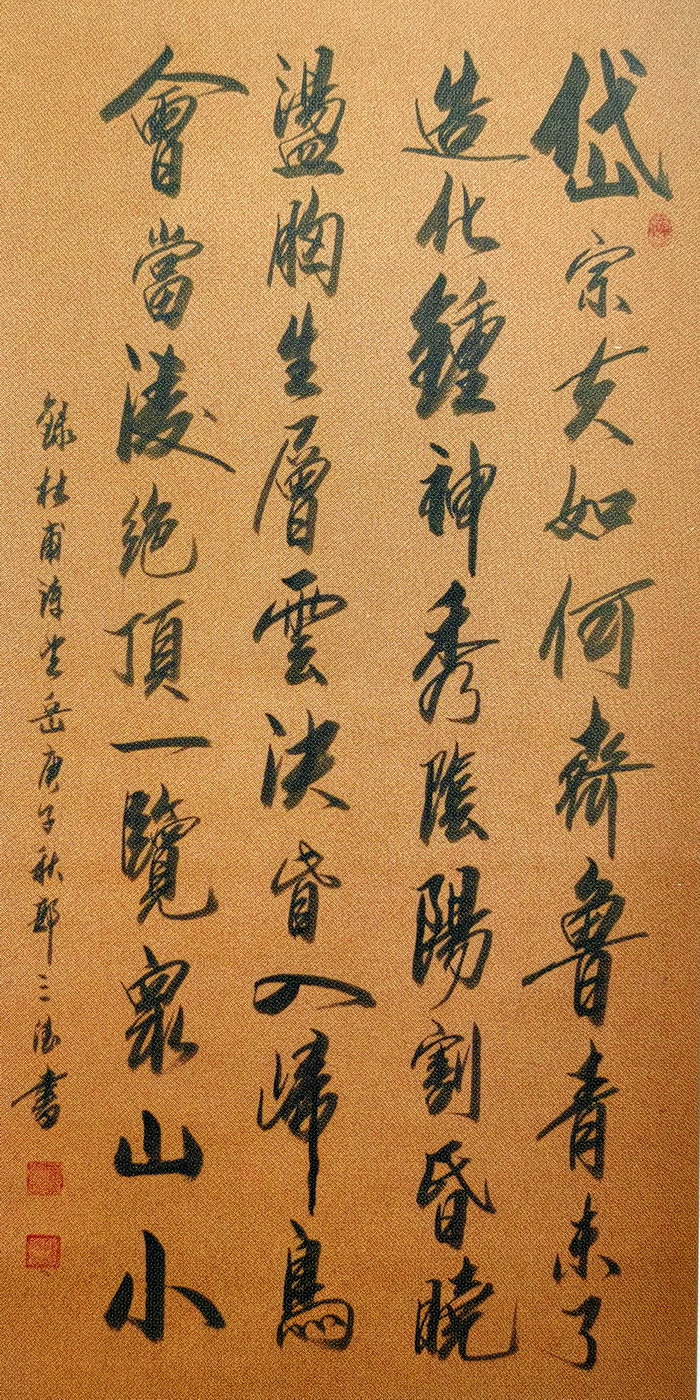 岱宗夫如何齊魯青未了
造化鍾神秀陰陽割昏曉
盪胸生層雲決眥入歸鳥
會當淩絶頂一覽眾山小
錄杜甫詩望岳庚子秋三書